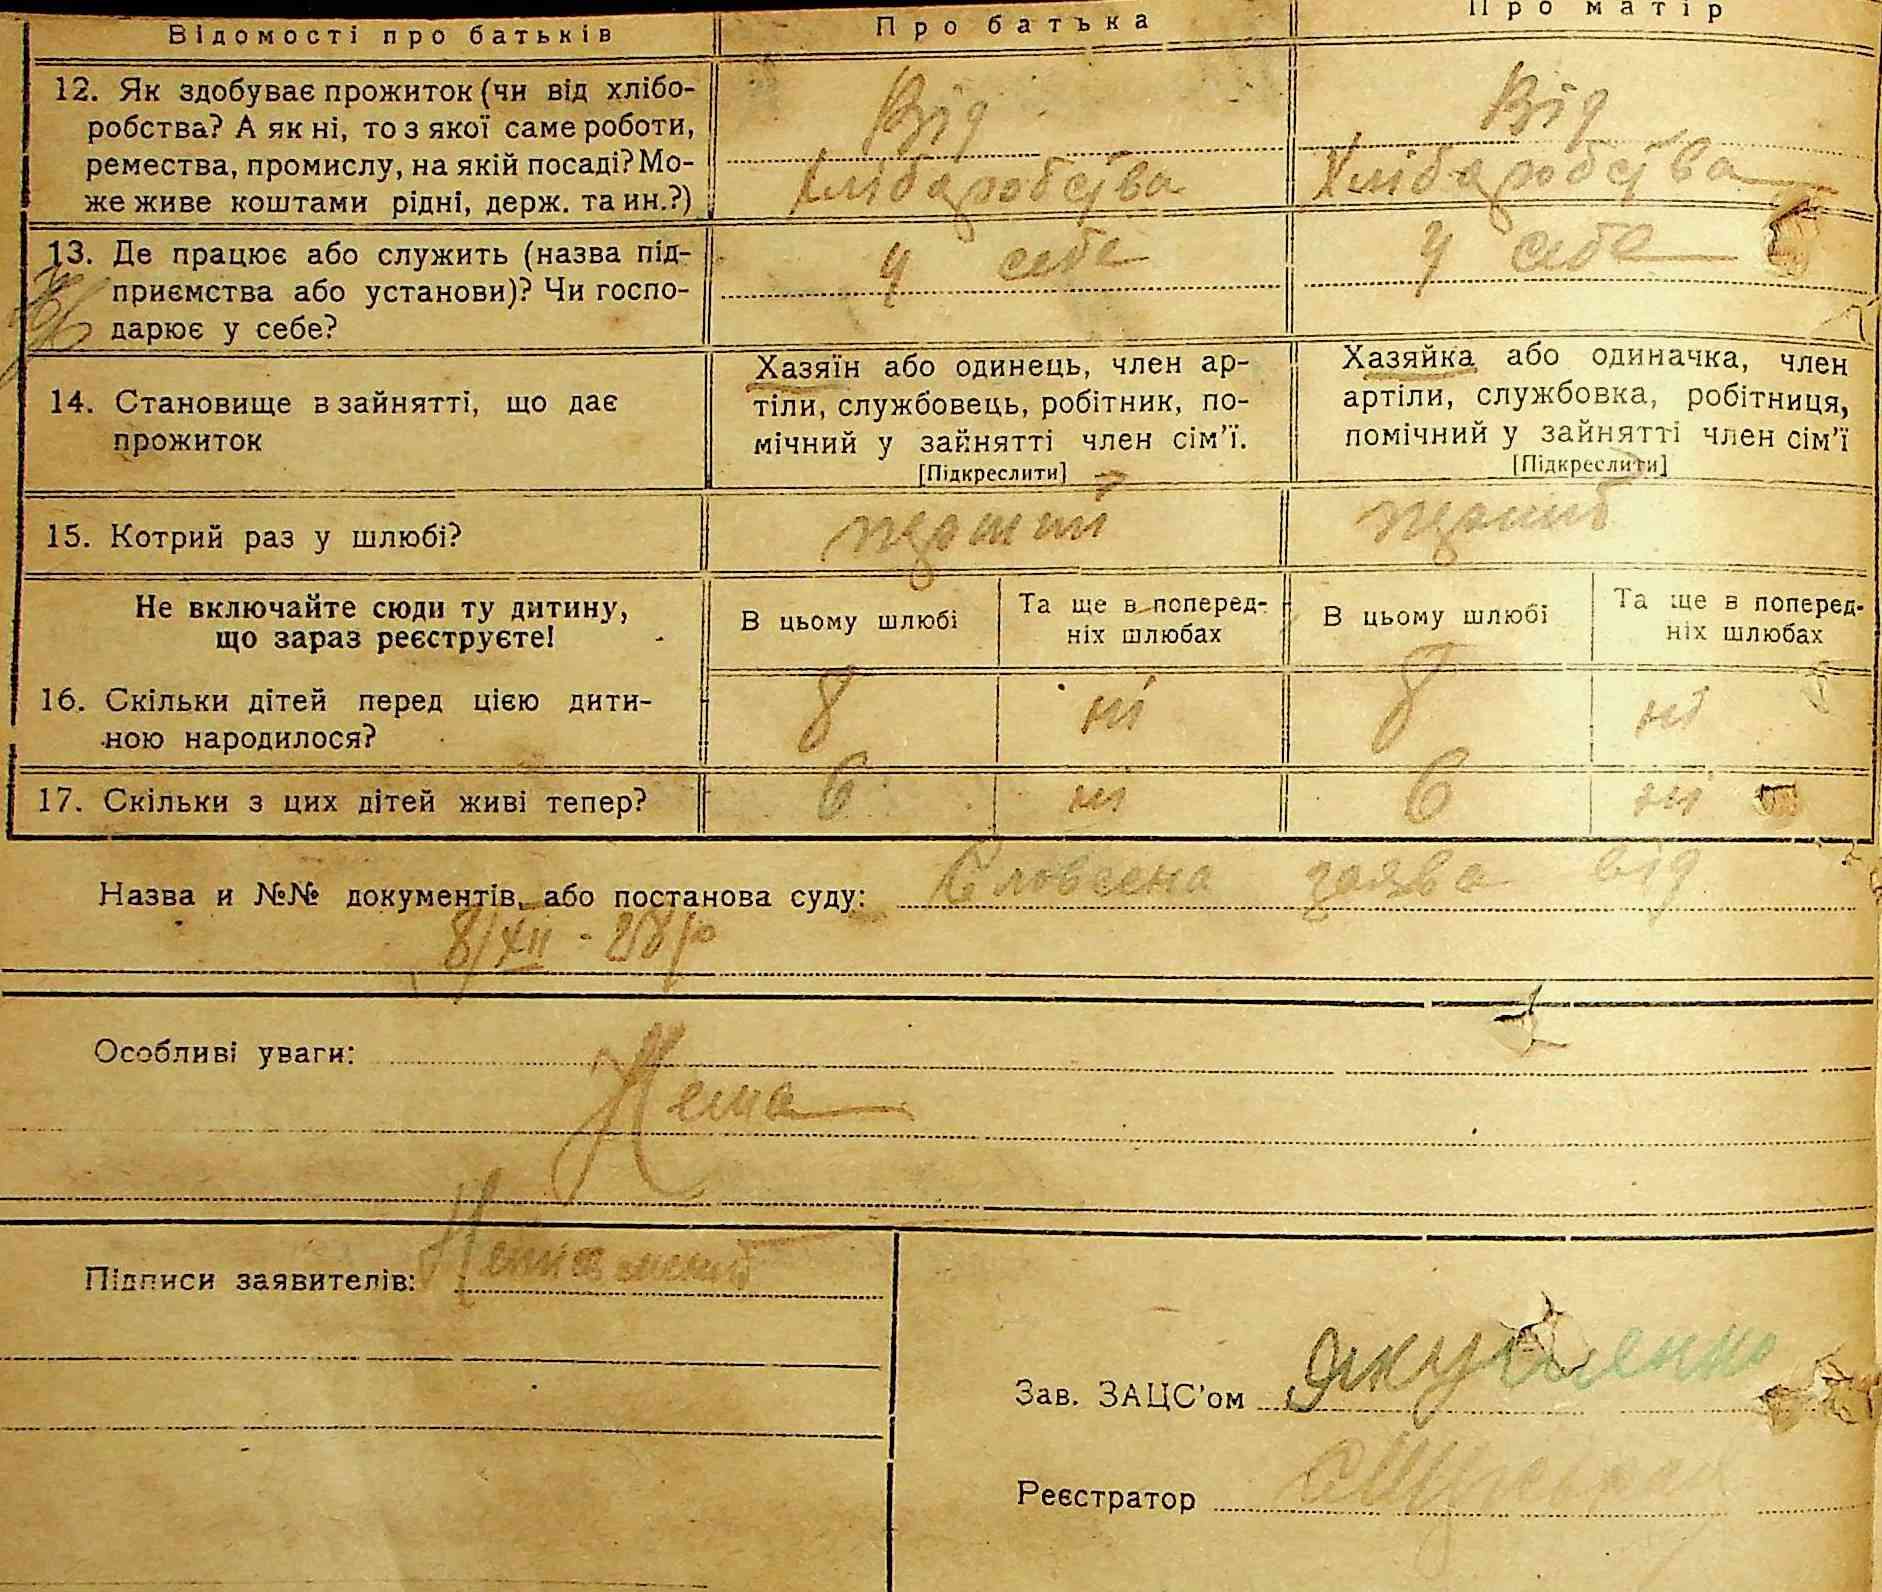 Відомості про батьків
Про батька
Про матір
12. Як здобуває прожиток (чи від хлібо-
робства? А як ні, то з якої саме роботи,
ремества, промислу, на якій посаді? Мо-
же живе коштами рідні, держ. та ин.?)
Від
Хлібаробства
Від
Хлібаробства
13. Де працює або служить (назва під-
приємства або установи)? Чи госпо-
дарює у себе?
у себе
у себе
14. Становище в зайнятті, що дає
прожиток
Хазяїн або одинець, член ар-
тіли, службовець, робітник, по-
мічний у зайнятті член сім’ї.
[Підкреслити]
Хазяйка або одиначка, член
артіли, службовка, робітниця,
помічний у зайнятті член сім’ї
[Підкреслити]
15. Котрий раз у шлюбі?
перший
перший
Не включайте сюди ту дитину,
що зараз реєструєте!
В цьому шлюбі
Та ще в поперед-
ніх шлюбах
В цьому шлюбі
Та ще в поперед-
ніх шлюбах
16. Скільки дітей перед цією дити-
ною народилося?
8 ні 8 ні
17. Скільки з цих дітей живі тепер?
6 ні 6 ні
Назва и №№ документів, або постанова суду: Словесна заява від
8/XII - 28 р
Особливі уваги:
Нема
Підписи заявителів: Неписьменний
Зав. ЗАЦС’ом
Реєстратор